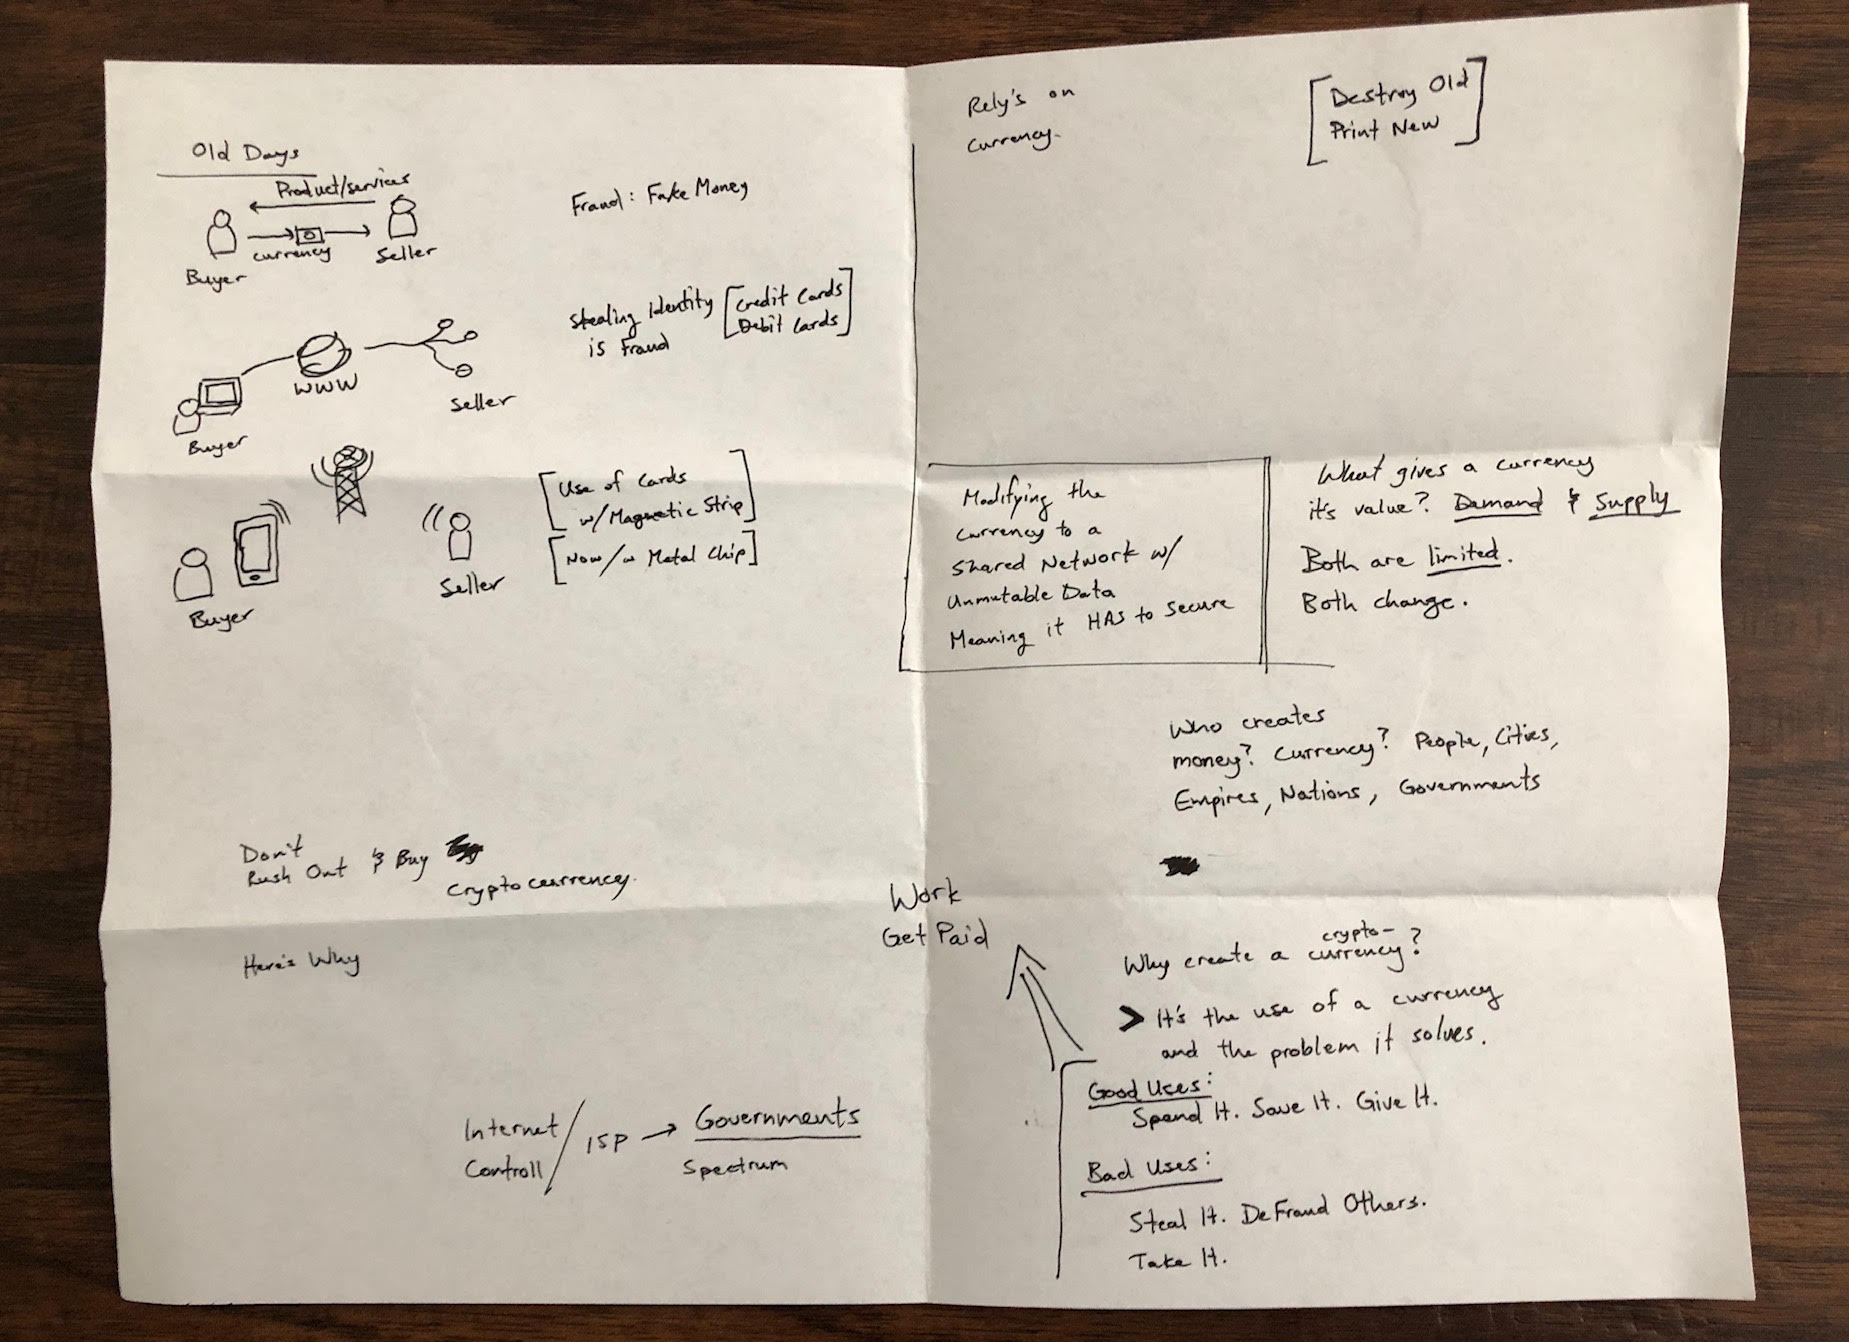 Old Days
Product/services
currency
Buyer
Seller
Fraud: Fake Money
WWW
Buyer
Seller
Stealing identity
is Fraud
Credit Cards
Debit Cards
Buyer
Seller
Use of Cards
w/Magnetic Strip
Now/w Metal Chip
Don't
Rush Out & Buy
Cryptocurrency.
Here's Why
Internet
Controll
ISP → Governments
Spectrum
Rely's on
currency.
Destroy Old
Print New
Modifying the
currency to a
Shared Network w/
Unmutable Data
Meaning it HAS to Secure
What gives a currency
it's value? Demand & Supply
Both are limited.
Both change.
Who creates
money? Currency? People, Cities,
Empires, Nations, Governments
Work
Get Paid
Why create a crypto-currency?
> It's the use of a currency
and the problem it solves.
Good Uses:
Spend It. Save It. Give It.
Bad Uses:
Steal It. DeFraud Others.
Take It.